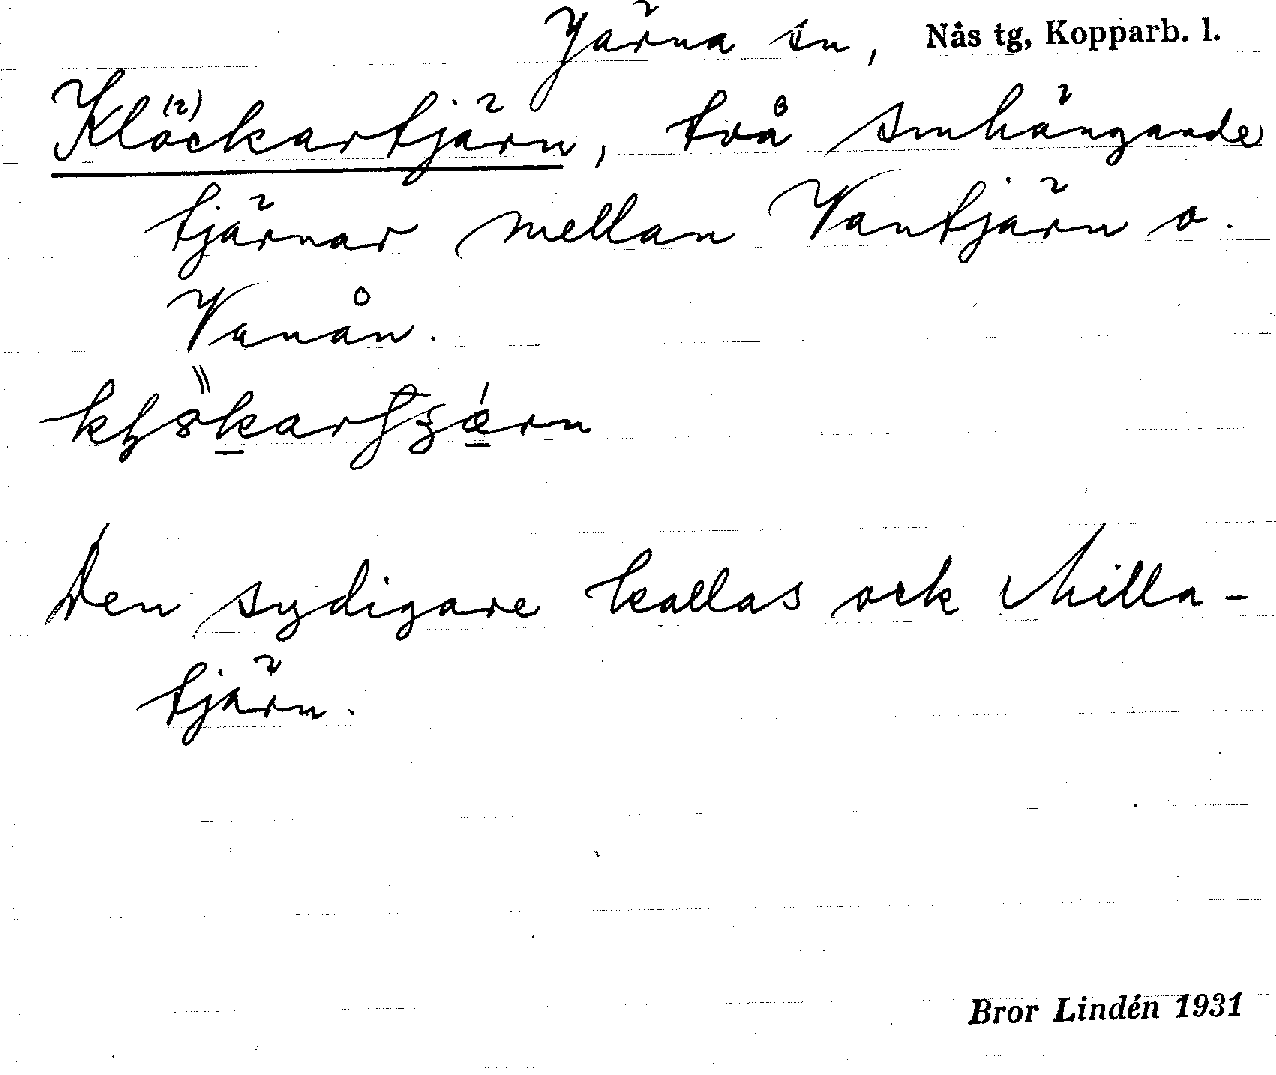 Järna sn, Nås tg, Kopparb. l.
Klöckartjärn, två smhängande
tjärnar mellan Vantjärn o.
Vanån.
Den sydigare kallas ock Milla-
tjärn.
Bror Lindén 1931